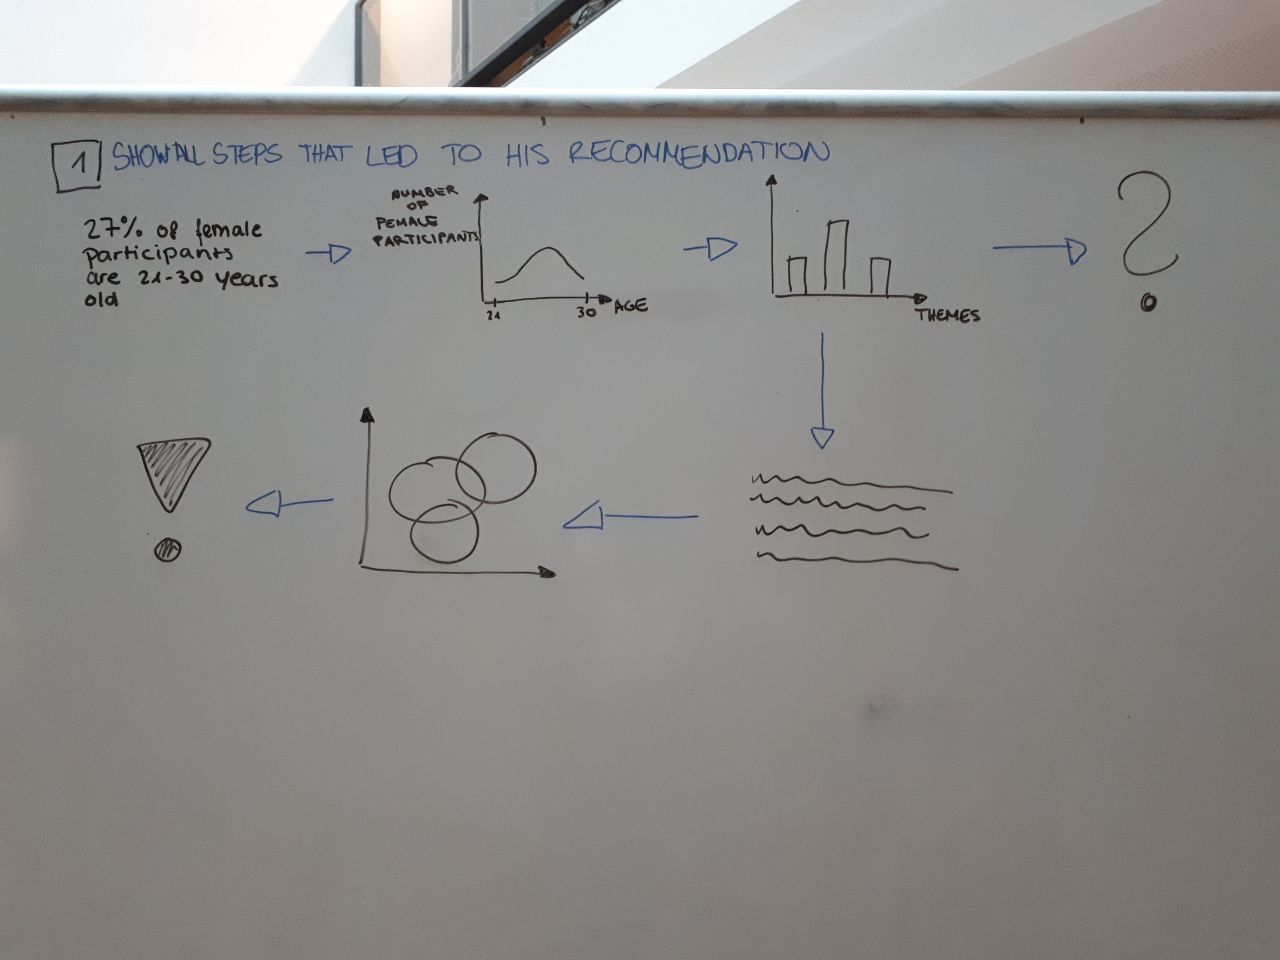 1 SHOW ALL STEPS THAT LED TO HIS RECOMMENDATION
27% of female
participants
are 21-30 years
old
NUMBER
OF
FEMALE
PARTICIPANTS
21
30
AGE
THEMES
?
!